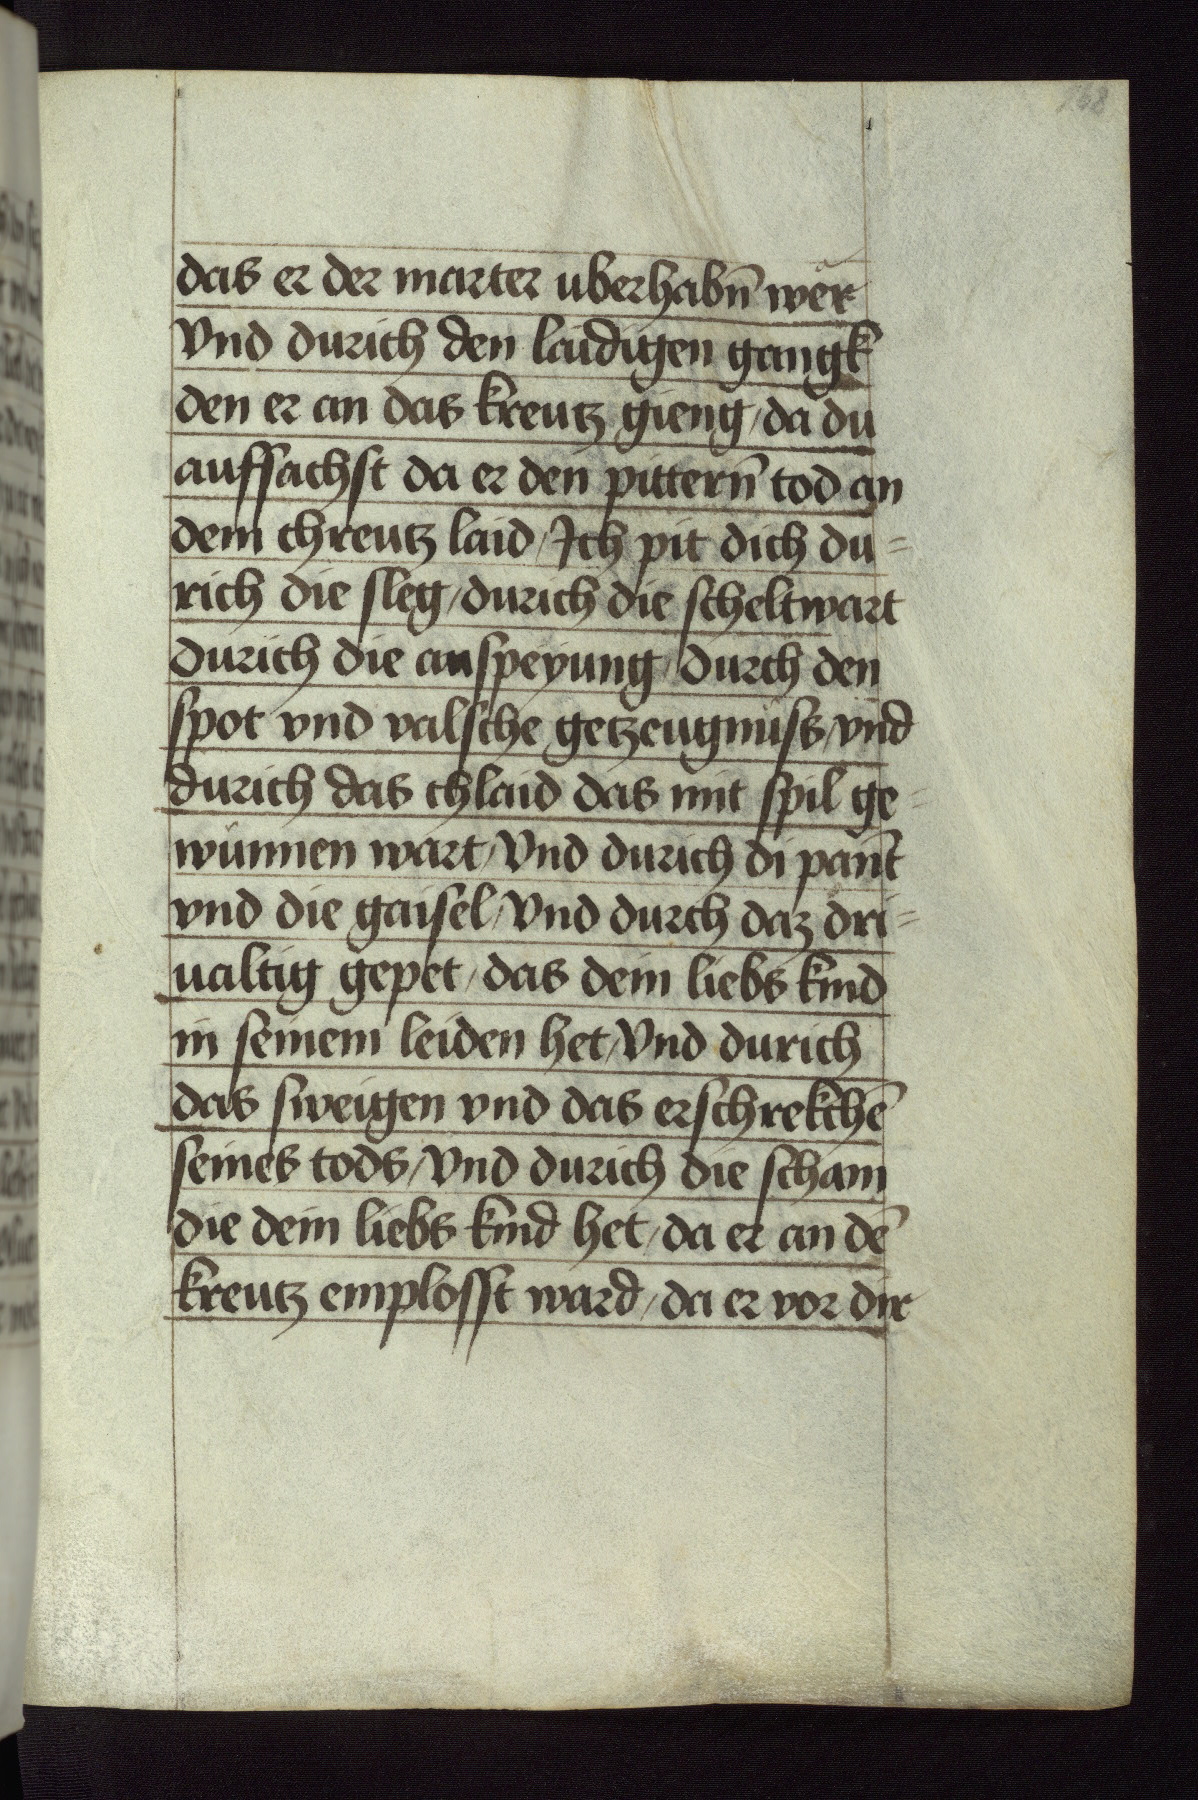 168
das er der marter uberhabn̄ wer
Vnd durich den laidigen gangk
den er an das kreutz gieng / da du
auffsachst da er den pittern̄ tod an
dem chreutz laid / Ich pit dich du=
rich die sleg / durich die scheltwart
durich die anspeyung / durch den
spot vnd valsche getzeugnüss / vnd
durich das chlaid das mit spil ge=
wunnen wart / Vnd durich di pant
vnd die gaisel / Vnd durch daz dri=
ualtig gepet / das dein liebs kind
in seinem leiden het / Vnd durich
das sweigen vnd das erschrekchē
seines tods / Vnd durich die scham
die dein liebs kind het / da er an dē
kreutz emplosst ward / da er vor dir